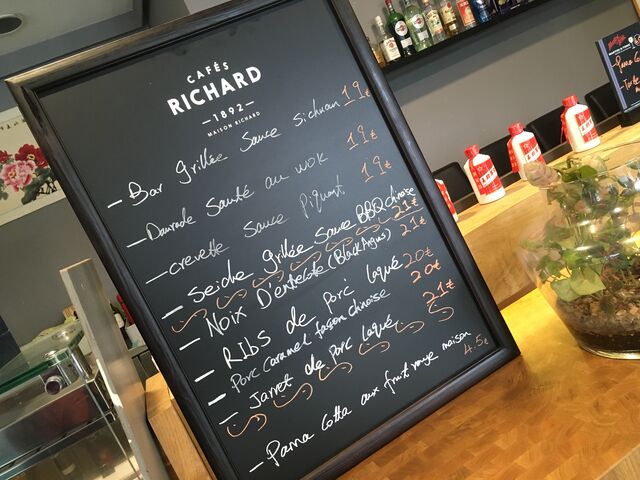 CAFÉS
RICHARD
1892
MAISON RICHARD
- Bar grillée Sauce Sichuan 19€
- Daurade Sauté au wok 19€
- crevette sauce Piquant 19€
- Seiche grillée Sauce BBQ chinoise 21€
- Noix D'entrecote (Black Argus) 21€
- RIBS de Porc laqué 20€
- Porc caramel fasson chinoise 20€
- Jarret de Porc laqué 21€
- Panna Cotta aux fruit rouge maison 4.5€